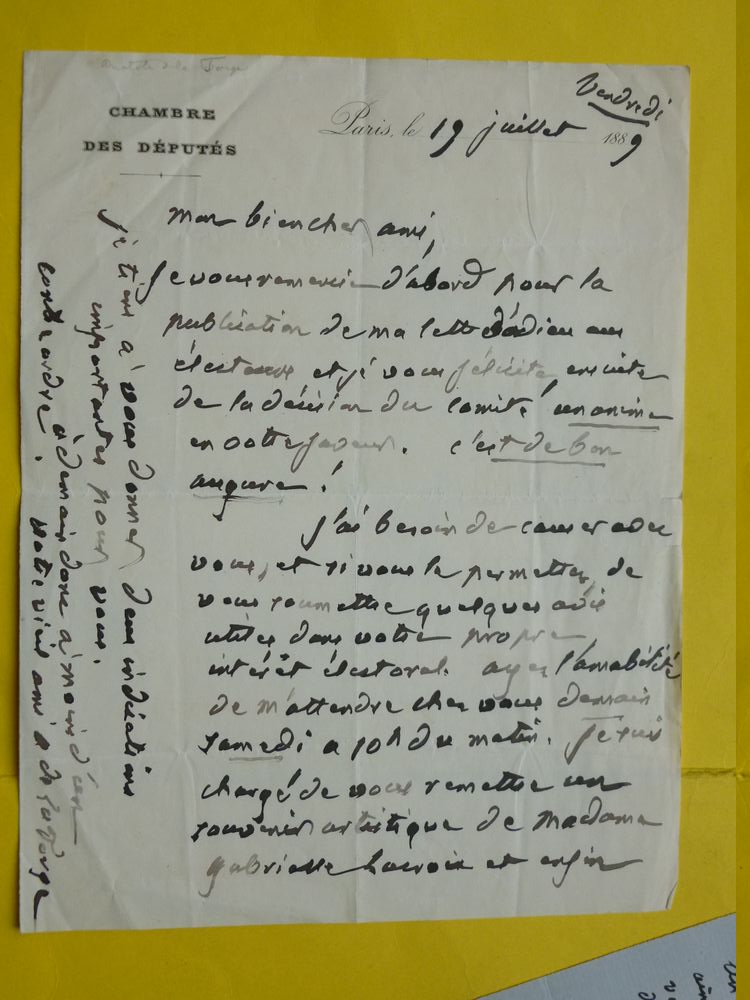 Anatole de la Forge
CHAMBRE
DES DÉPUTÉS
Vendredi
Paris, le 19 juillet 1889
mon bien cher ami,
Je vous remercie d'abord pour la
publication de ma lettre d'adieu aux
électeurs et je vous félicite, ensuite
de la décision du comité, unanime
en votre faveur. c'est de bon
augure !
J'ai besoin de causer avec
vous, et si vous le permettez, de
vous soumettre quelques avis
utiles dans votre propre
intérêt électoral. ayez l'amabilité
de m'attendre chez vous demain
samedi a 10h du matin. Je suis
chargé de vous remettre un
souvenir artistique de madame
Gabrielle Lacroix et enfin
je tiens à vous donner deux indications
importantes pour vous.
à demain donc à moins d'un
contre ordre.
votre vieil ami A de La Forge